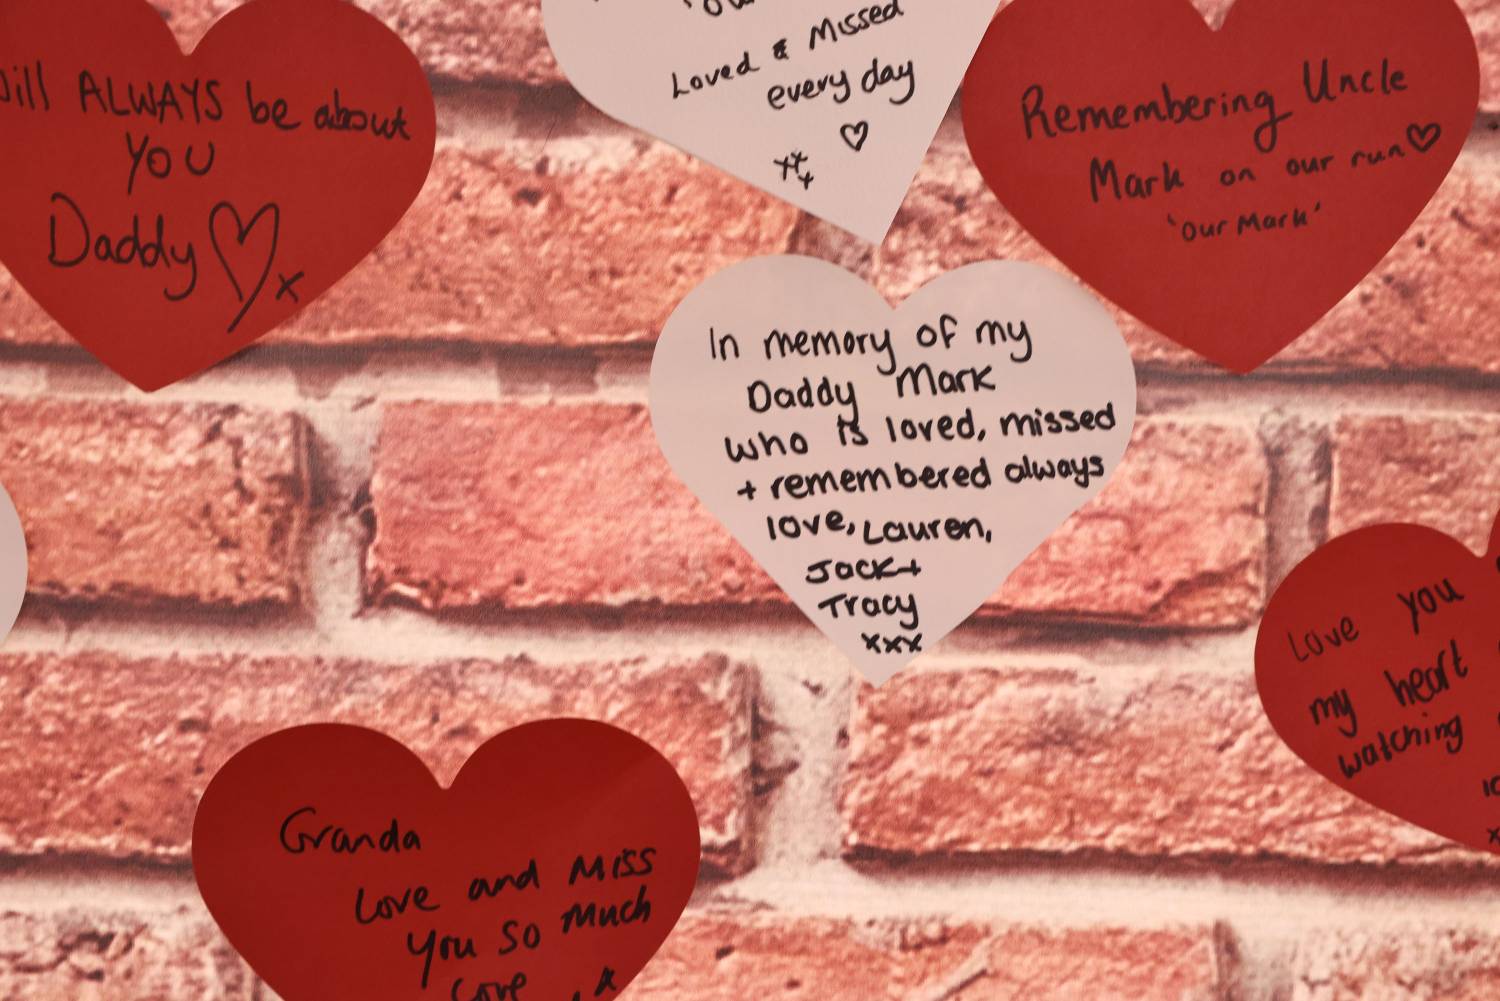 Will ALWAYS be about
YOU
Daddy
x
Loved & Missed
every day
Remembering Uncle
Mark on our run
'our Mark'
In memory of my
Daddy Mark
who is loved, missed
+ remembered always
love, Lauren,
Jack +
Tracy
xxx
Love you
my heart
watching
Granda
Love and Miss
you so much
Love